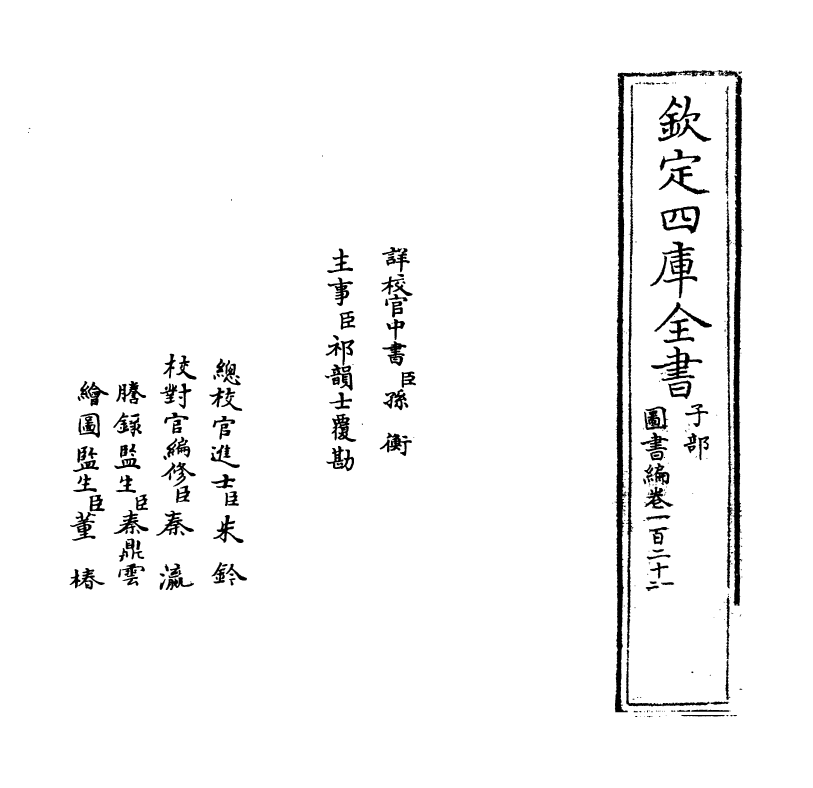 欽定四庫全書
子部
圖書編卷一百二十一二
詳校官中書臣孫衡
主事臣祁韻士覆勘
總校官進士臣朱鈐
校對官編修臣秦瀛
謄錄監生臣秦鼎雲
繪圖監生臣董椿